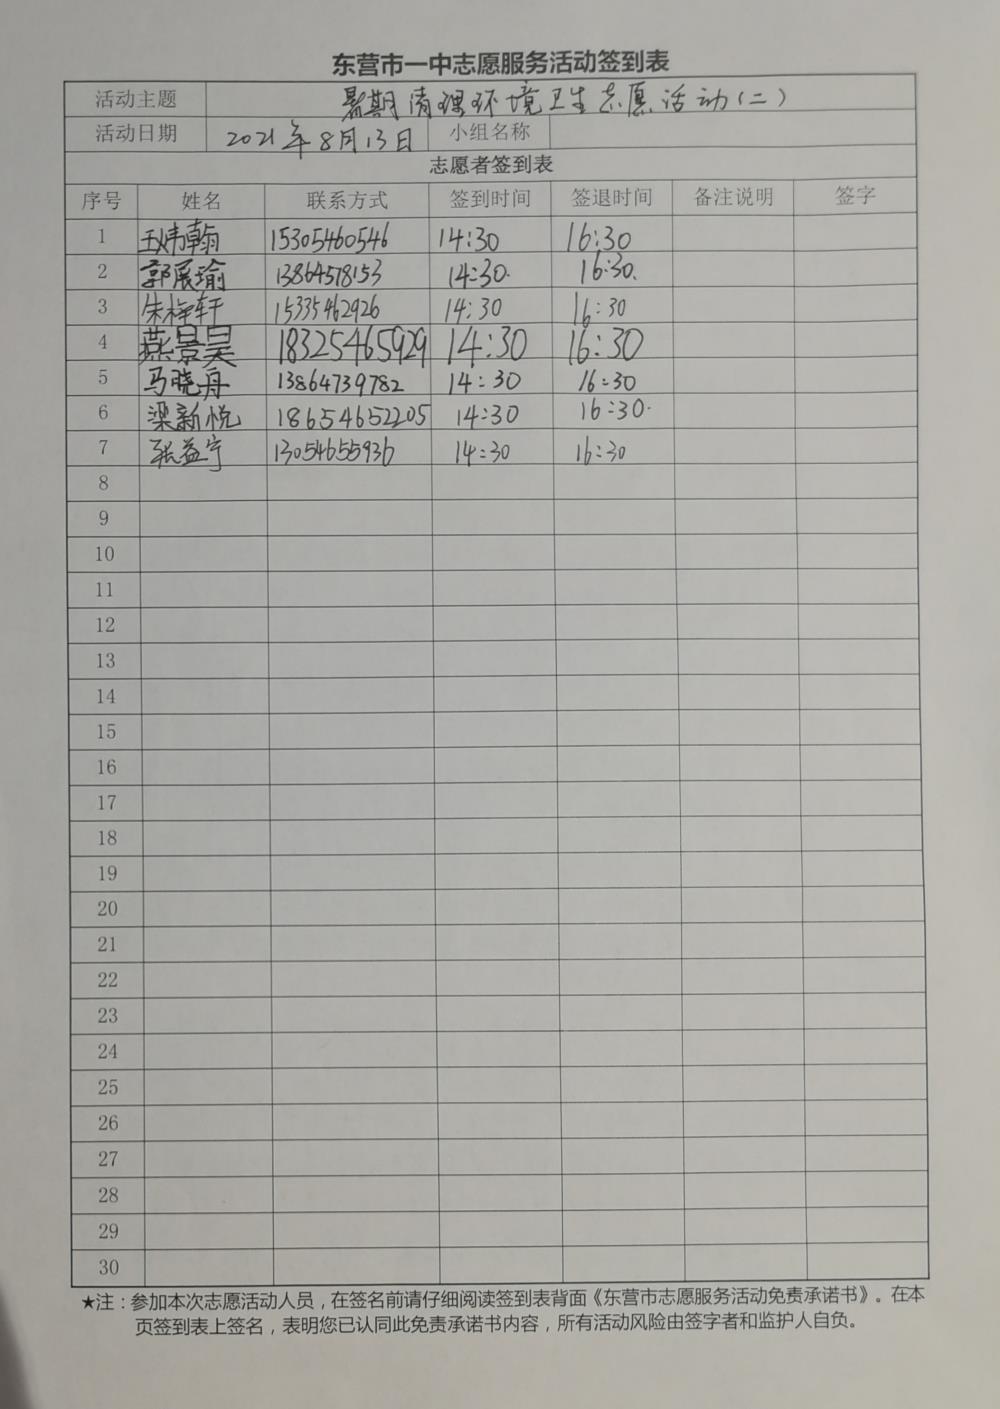 东营市一中志愿服务活动签到表
活动主题 暑期清理环境卫生志愿活动(二)
活动日期 2021年8月13日 小组名称
志愿者签到表
序号 姓名 联系方式 签到时间 签退时间 备注说明 签字
1 王炜翰 15305460546 14:30 16:30
2 郭展瑜 13864578153 14:30. 16:30.
3 朱梓轩 15335462926 14:30 16:30
4 燕景昊 18325465929 14:30 16:30
5 马晓舟 13864739782 14:30 16:30
6 梁新悦 18654652205 14:30 16:30.
7 张益宁 13054655936 14:30 16:30
8
9
10
11
12
13
14
15
16
17
18
19
20
21
22
23
24
25
26
27
28
29
30
★注：参加本次志愿活动人员，在签名前请仔细阅读签到表背面《东营市志愿服务活动免责承诺书》。在本
页签到表上签名，表明您已认同此免责承诺书内容，所有活动风险由签字者和监护人自负。